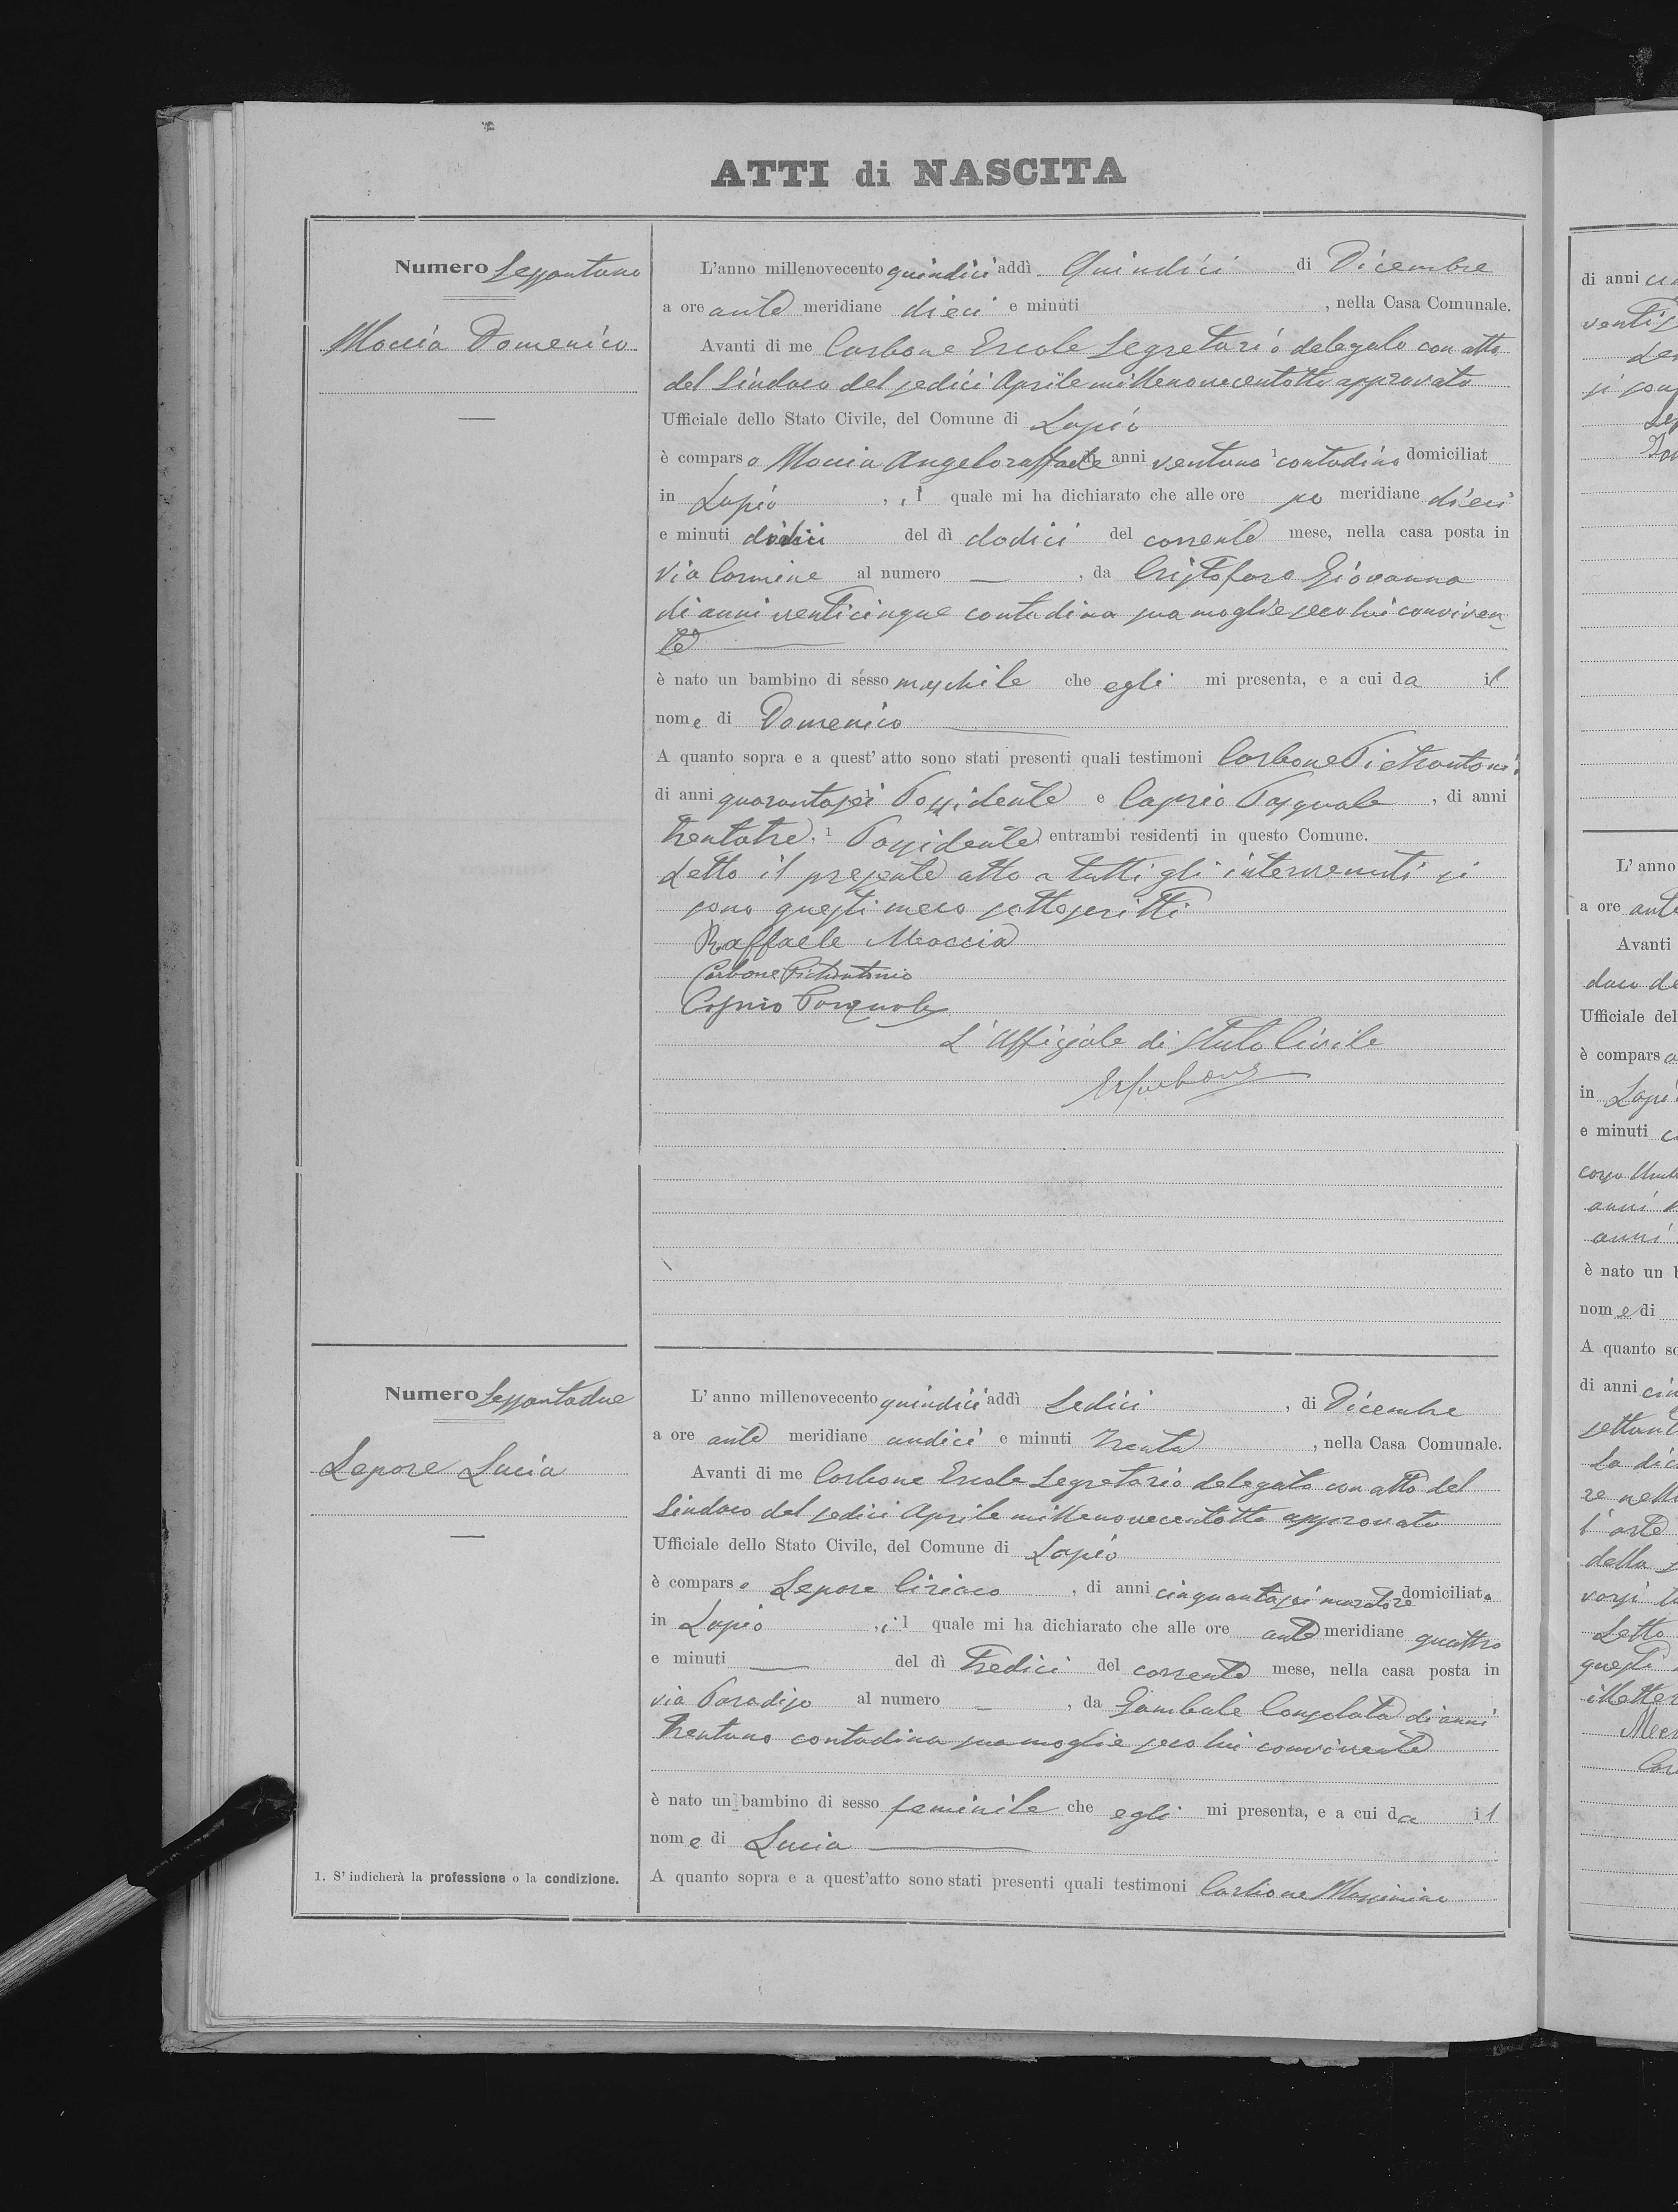 ATTI di NASCITA
Numero Sessantuno
Moccia Domenico
L'anno millenovecento quindici addì Quindici di Dicembre
a ore ante meridiane dieci e minuti , nella Casa Comunale.
Avanti di me Carbone Ercole Segretario delegato con atto
del Sindaco del sedici Aprile millenovecentotto approvato
Ufficiale dello Stato Civile, del Comune di Lapio
è comparso Moccia Angeloraffaele di anni ventuno 1 contadino domiciliat
in Lapio , il quale mi ha dichiarato che alle ore po meridiane dieci
e minuti del dì dodici del corrente mese, nella casa posta in
Via Carmine al numero — , da Cristofaro Giovanna
di anni venticinque contadina sua moglie seco lui conviven-
te
è nato un bambino di sesso maschile che egli mi presenta, e a cui da il
nome di Domenico
A quanto sopra e a quest' atto sono stati presenti quali testimoni Carbone Pietrantoni.
di anni quarantasei Possidente e Caprio Pasquale , di anni
trentatre, 1 Possidente entrambi residenti in questo Comune.
Letto il presente atto a tutti gli intervenuti si
sono questi meco sottoscritti
Raffaele Moccia
Carbone Pietrantonio
Caprio Pasquale
L'Uffiziale di Stato Civile
ECarbone
Numero Sessantadue
Lepore Lucia
L'anno millenovecento quindici addì Sedici , di Dicembre
a ore ante meridiane undici e minuti Trenta , nella Casa Comunale.
Avanti di me Carbone Ercole Segretario delegato con atto del
Sindaco del sedici Aprile millenovecentotto approvato
Ufficiale dello Stato Civile, del Comune di Lapio
è comparso Lepore Ciriaco , di anni cinquantasei muratore domiciliato
in Lapio , il quale mi ha dichiarato che alle ore ante meridiane quattro
e minuti — del dì Tredici del corrente mese, nella casa posta in
via Paradiso al numero — , da Gambale Consolata di anni
trentuno contadina sua moglie seco lui convivente
è nato un bambino di sesso feminile che egli mi presenta, e a cui da il
nome di Lucia
A quanto sopra e a quest'atto sono stati presenti quali testimoni Carbone Massimino
1. S' indicherà la professione o la condizione.
di anni
L' anno
a ore ante
Avanti
Ufficiale del
è comparso
in Lapi
e minuti
anni
anni
è nato un b
nome di
A quanto so
di anni
settant
re nell
l'arte
della
Letto
questi